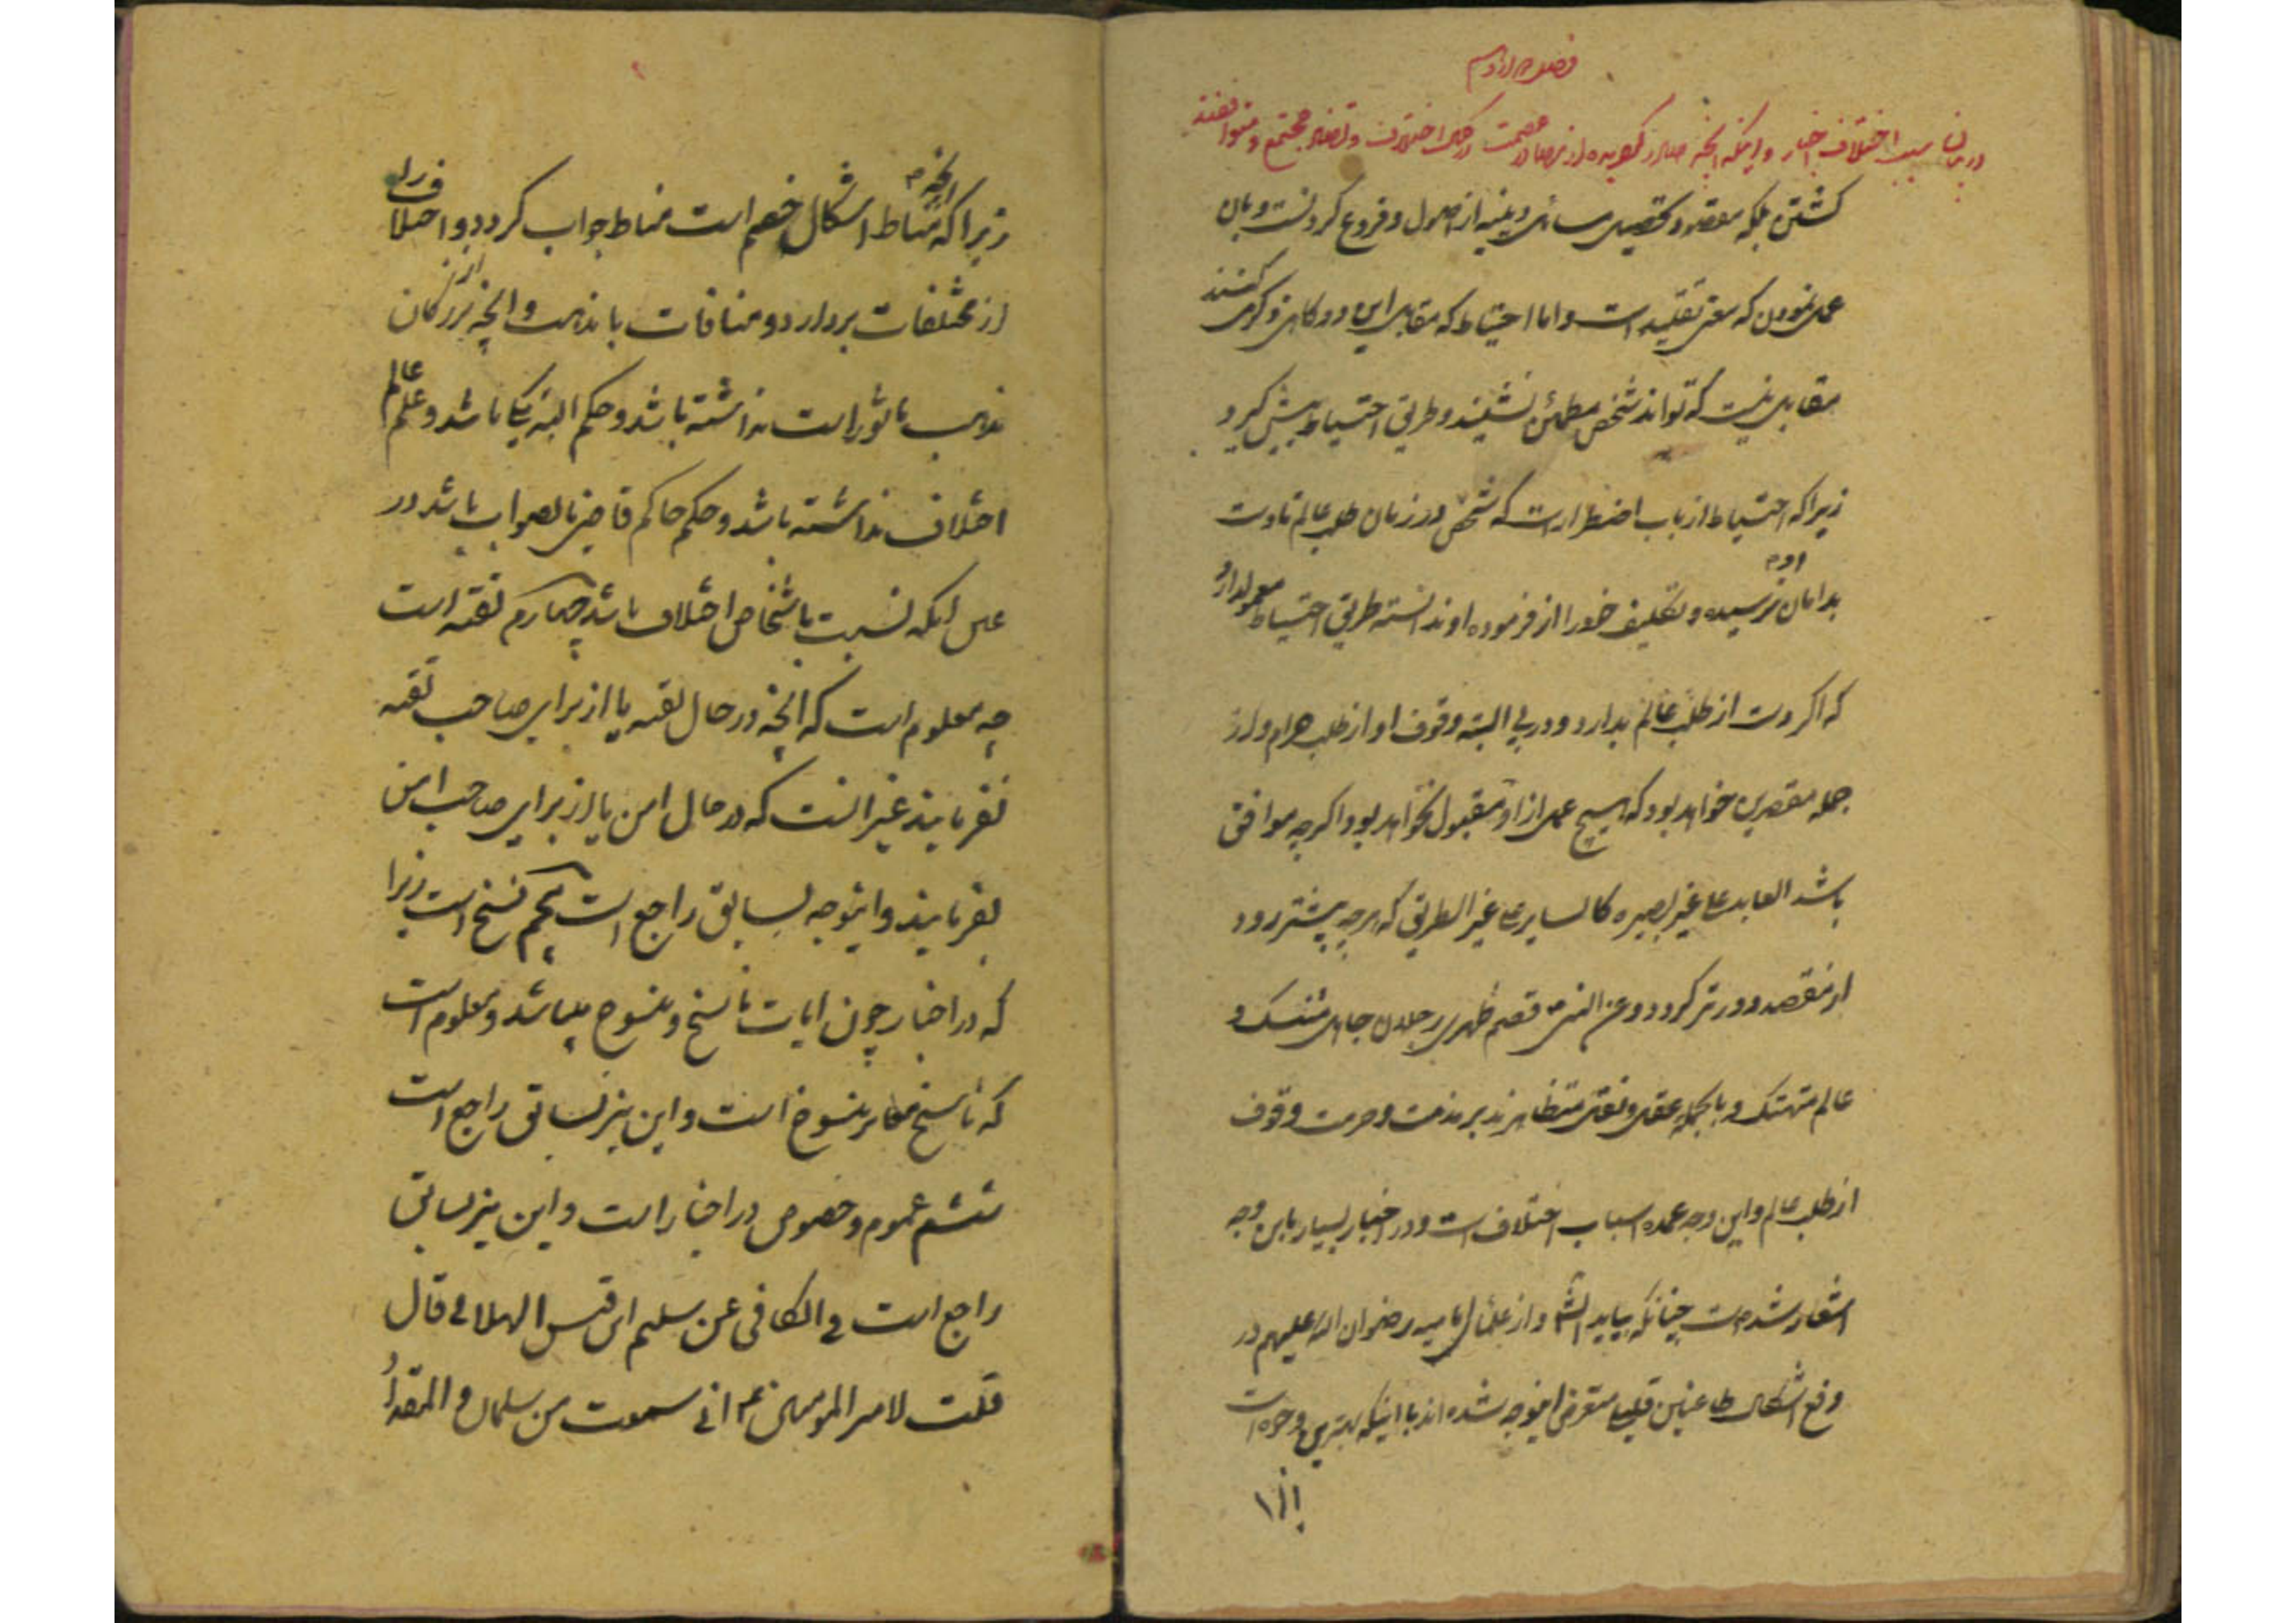 فصل دوازدهم
در بیان سبب اختلاف اخبار و اینکه آنچه صادر گردیده از مصادر عصمت در عین اختلاف و تضاد مجتمع و متوافقند
گشتن بلکه مقصود تحصیل مسائل دینیه از اصول و فروع کردنست و بان
عمل نمودن که معنی تقلید است و اما احتیاط که مقابل این دو رکن ذکر میکنند
مقابل نیست که تواند شخص مطمئن نشیند و طریق احتیاط پیش گیرد
زیرا که احتیاط از باب اضطرار است که شخص در زمان طلب عالم تا دست
بدامان او نرسیده و تکلیف خود را از فرموده او ندانسته طریق احتیاط معمول دارد
که اگر دست از طلب عالم بدارد و در پی البته وقوف او از طلب حرام و از
جمله مقصرین خواهد بود که هیچ عمل از او مقبول نخواهد بود اگر چه موافق
باشد العابد علی غیر بصیره کالسایر علی غیر الطریق که هر چه پیشتر رود
از مقصد دورتر گردد و عن النبی قصم ظهری رجلان جاهل متنسک و
عالم متهتک و بالجمله عقل و نقل متظاهرند بر مذمت و حرمت وقوف
از طلب عالم و این وجه عمده اسباب اختلاف است و در اخبار بسیار باین وجه
اشعار شده است چنانکه بیاید انشا و از علمای امامیه رضوان الله علیهم در
دفع اشکال طاعنین قلیل متعرض اینوجه شده اند با اینکه بهترین وجوه است
زیرا
زیرا که آنچه مناط اشکال خصم است مناط جواب گردد و اختلاف را
از مختلفات بردارد و منافات با مذهب و آنچه از بزرگان
مذهب ماثور است نداشته باشد و حکم البته یکی باشد و علم عالم
اختلاف نداشته باشد و حکم حاکم قاضی بالصواب باشد در
عین اینکه نسبت باشخاص اختلاف باشد چهارم تقیه است
چه معلوم است که آنچه در حال تقیه یا از برای صاحب تقیه
بفرمایند غیر آنست که در حال امن یا از برای صاحب امن
بفرمایند و اینوجه بسابق راجع است پنجم نسخ است زیرا
که در اخبار چون ایات ناسخ و منسوخ میباشد و معلوم است
که ناسخ مغایر منسوخ است و این نیز بسابق راجع است
ششم عموم و خصوص در اخبار است و این نیز بسابق
راجع است فی الکافی عن سلیم ابن قیس الهلالی قال
قلت لامیر المومنین ع انی سمعت من سلمان و المقداد